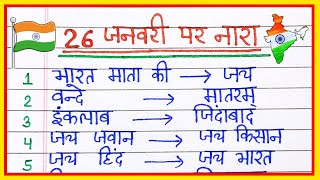 26 जनवरी पर नारा
1 भारत माता की → जय
2 वन्दे → मातरम्
3 इंकलाब → जिंदाबाद
4 जय जवान → जय किसान
5 जय हिंद → जय भारत